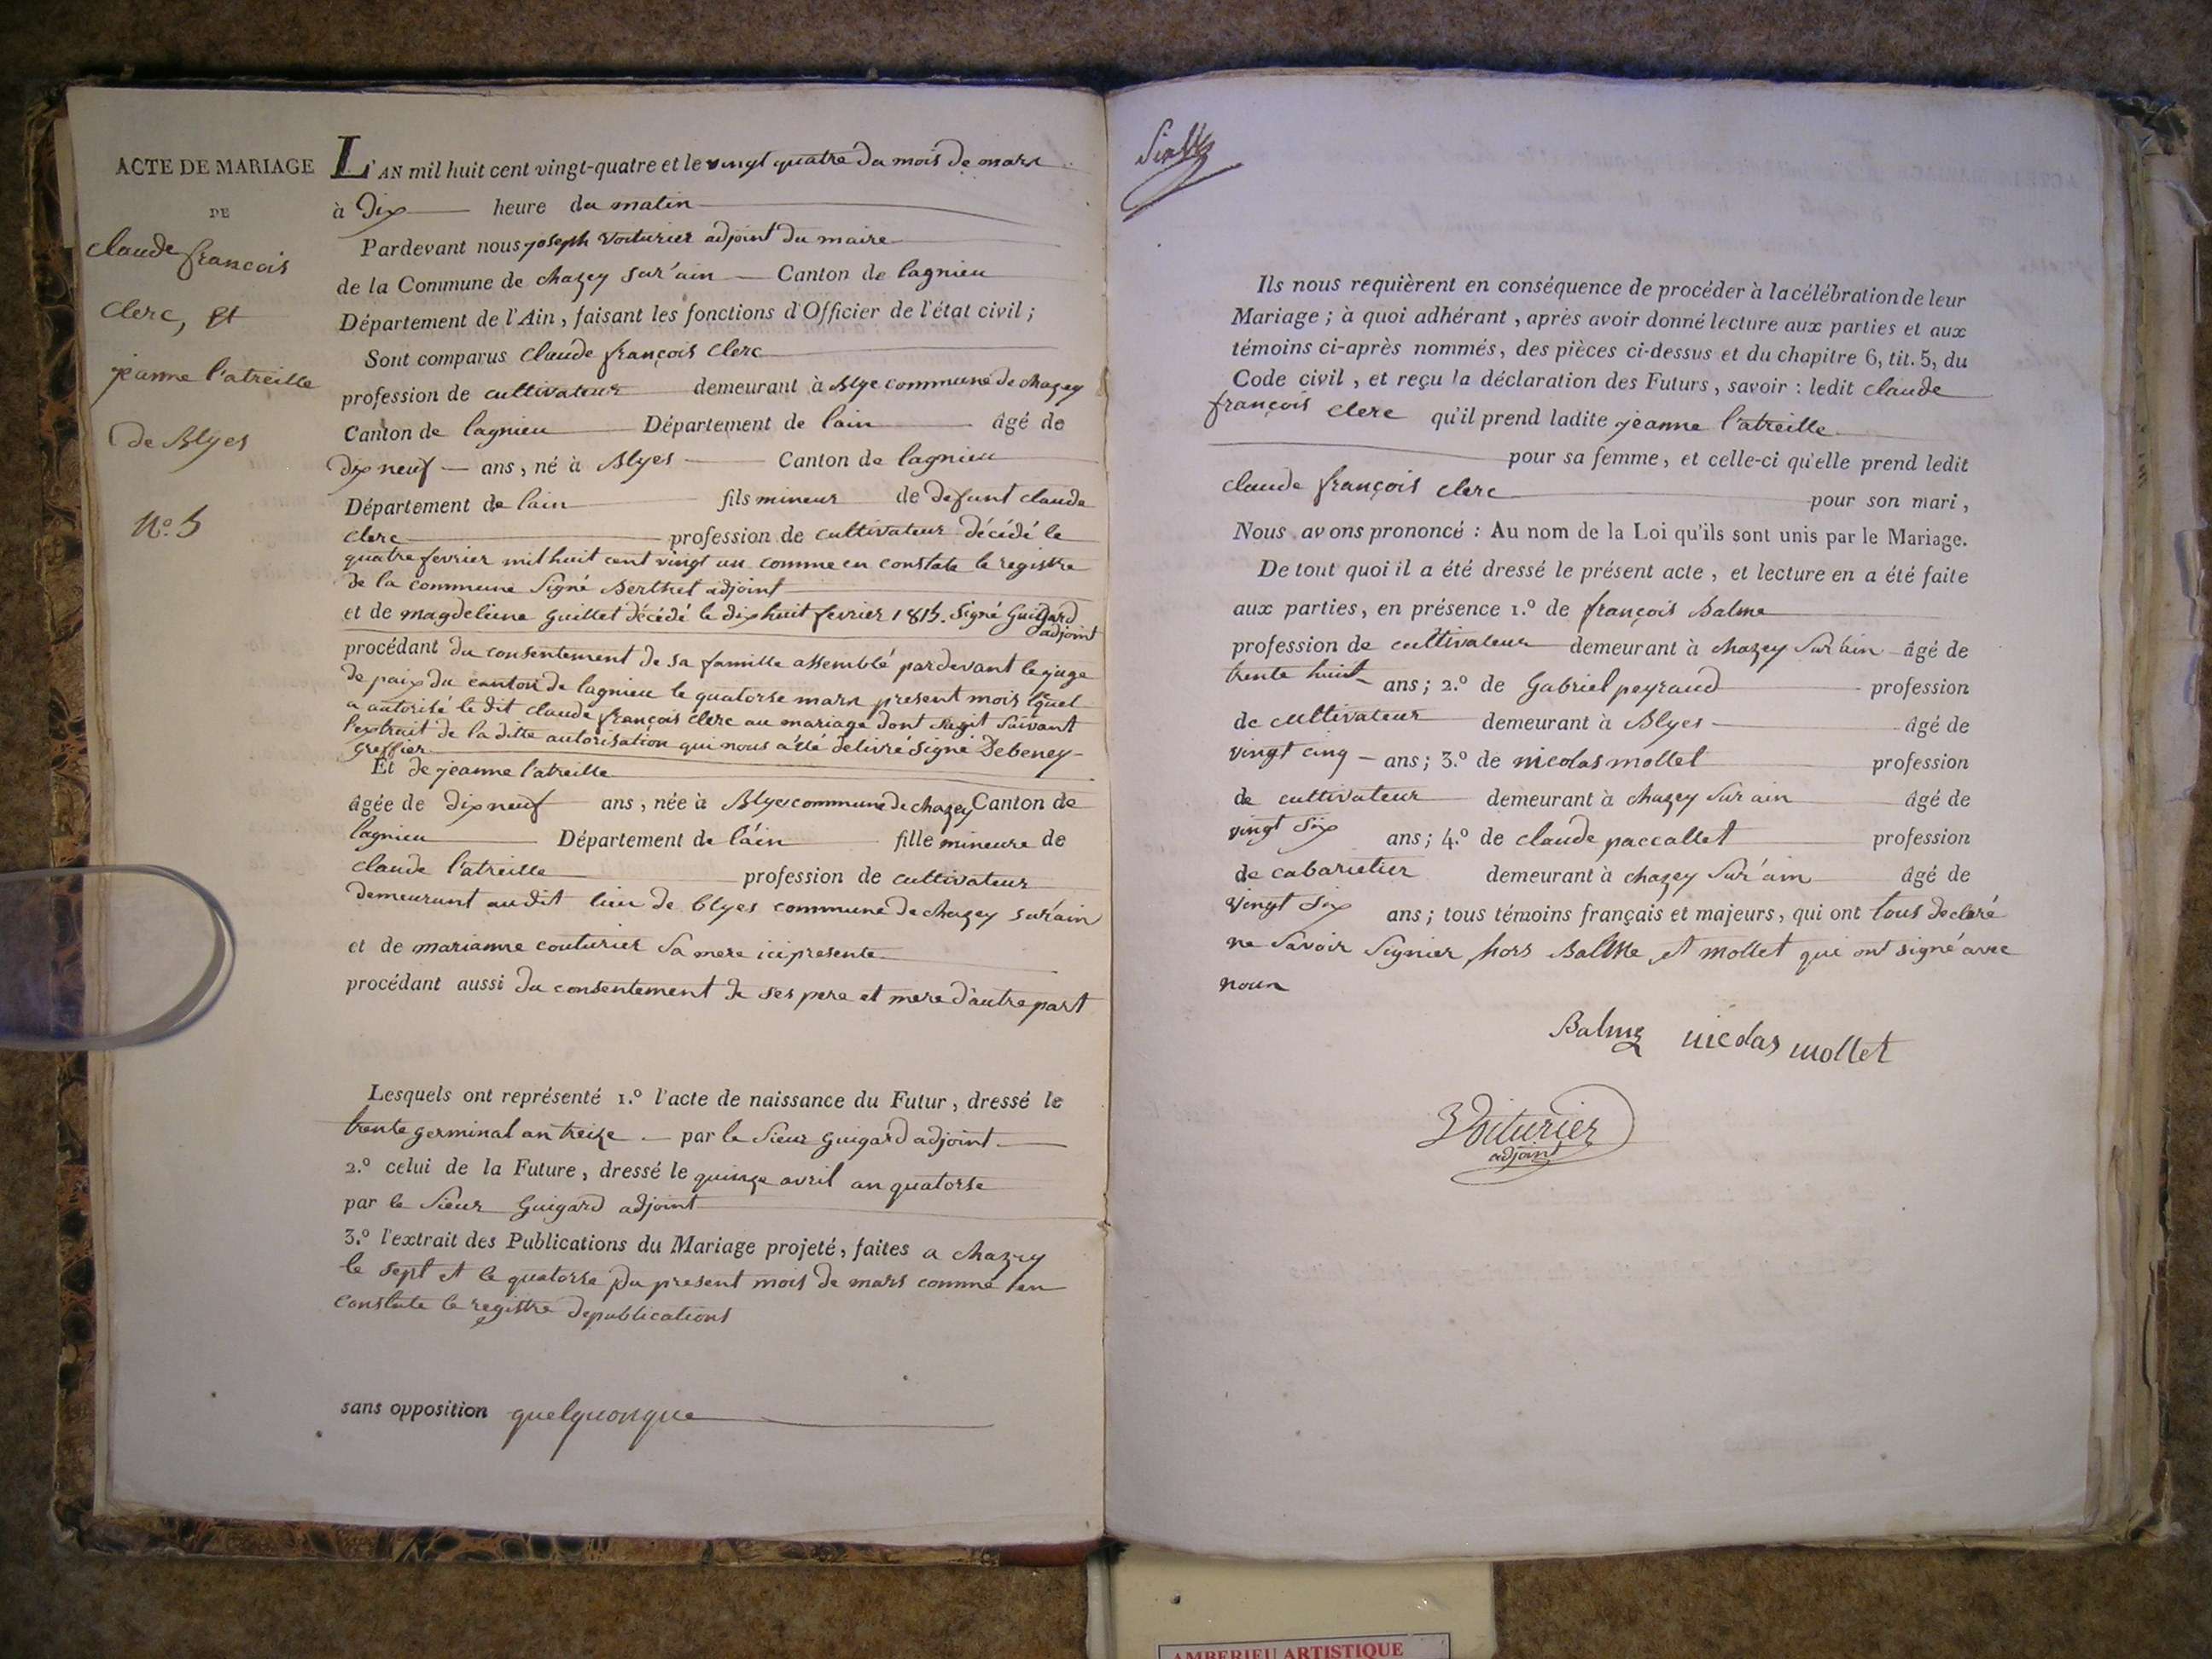 ACTE DE MARIAGE
DE
claude françois
clerc, et
jeanne l'atreille
de Blyes
N.º 5
L'AN mil huit cent vingt-quatre et le vingt quatre du mois de mars
à dix heure du matin
Pardevant nous joseph Voiturier adjoint du maire
de la Commune de chazey sur'ain Canton de lagnieu
Département de l'Ain, faisant les fonctions d'Officier de l'état civil;
Sont comparus claude françois clerc
profession de cultivateur demeurant à Blye commune de chazey
Canton de lagnieu Département de lain âgé de
dix neuf ans, né à Blyes Canton de lagnieu
Département de lain fils mineur de defunt claude
clerc profession de cultivateur décédé le
quatre fevrier mil huit cent vingt un comme en constate le registre
de la commune Signé Berthet adjoint
et de magdeleine Guillet décédé le dix huit fevrier 1815. Signé Guigard
adjoint
procédant du consentement de sa famille assemblé pardevant le juge
de paix du canton de lagnieu le quatorse mars present mois lquel
a autorisé le dit claude françois clerc au mariage dont sagit suivant
l'extrait de la ditte autorisation qui nous a été delivré signé Debeney
greffier
Et de jeanne l'atreille
âgée de dix neuf ans, née à Blyes commune de chazey Canton de
lagnieu Département de l'ain fille mineure de
claude l'atreille profession de cultivateur
demeurant audit lieu de blyes commune de chazey sur'ain
et de marianne couturier sa mere ici presente
procédant aussi du consentement de ses pere et mere d'autre part
Lesquels ont représenté 1.º l'acte de naissance du Futur, dressé le
trente germinal an treize par le Sieur guigard adjoint
2.º celui de la Future, dressé le quinze avril an quatorse
par le Sieur Guigard adjoint
3.º l'extrait des Publications du Mariage projeté, faites a chazey
le sept et le quatorse du present mois de mars comme en
constate le registre depublications
sans opposition quelquonque
Ils nous requièrent en conséquence de procéder à la célébration de leur
Mariage; à quoi adhérant, après avoir donné lecture aux parties et aux
témoins ci-après nommés, des pièces ci-dessus et du chapitre 6, tit. 5, du
Code civil, et reçu la déclaration des Futurs, savoir : ledit claude
françois clerc qu'il prend ladite jeanne l'atreille
pour sa femme, et celle-ci qu'elle prend ledit
claude françois clerc pour son mari,
Nous avons prononcé : Au nom de la Loi qu'ils sont unis par le Mariage.
De tout quoi il a été dressé le présent acte, et lecture en a été faite
aux parties, en présence 1.º de françois Balme
profession de cultivateur demeurant à chazey Sur ain âgé de
trente huit ans; 2.º de Gabriel peyraud profession
de cultivateur demeurant à Blyes âgé de
vingt cinq ans; 3.º de nicolas mollet profession
de cultivateur demeurant à chazey Sur ain âgé de
vingt six ans; 4.º de claude paccallet profession
de cabarietier demeurant à chazey Sur'ain âgé de
vingt six ans; tous témoins français et majeurs, qui ont tous declaré
ne savoir signier hors Balme et mollet qui ont signé avec
nous
Balme nicolas mollet
Voiturier
adjoint
AMBERIEU ARTISTIQUE